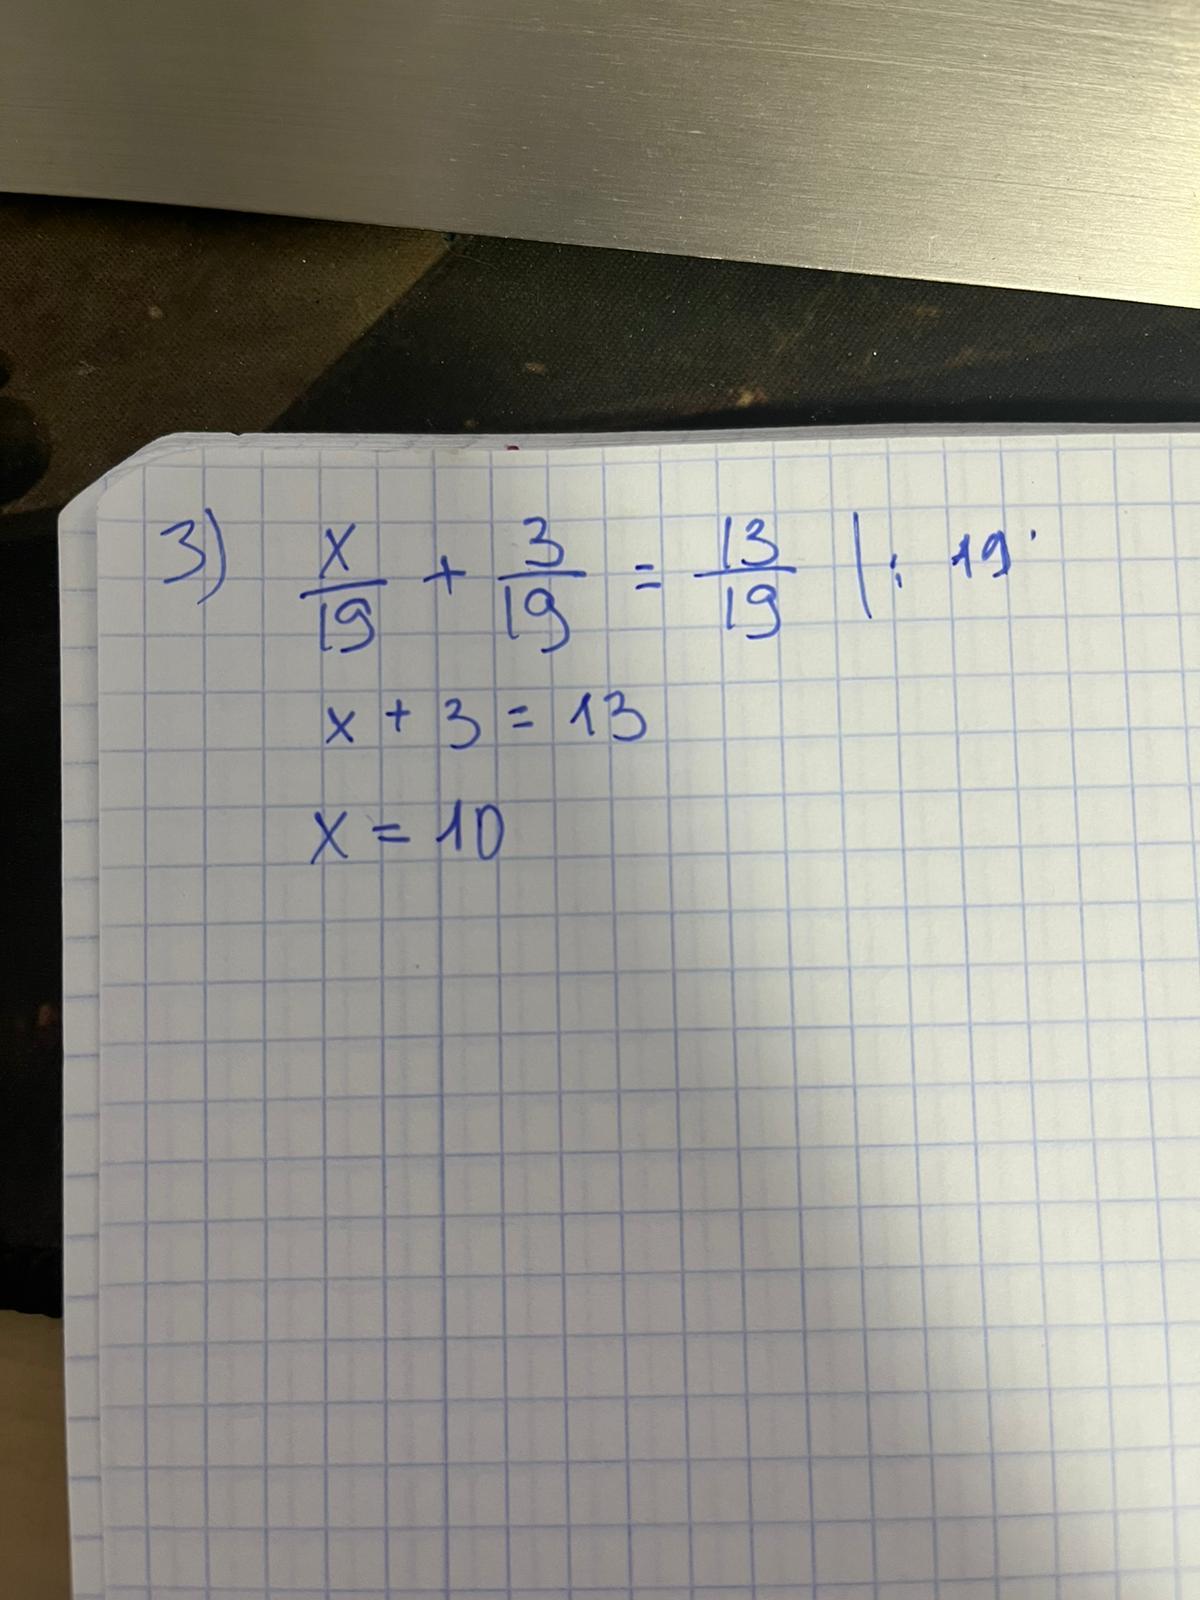 3) x/19 + 3/19 = 13/19 | : 19
x + 3 = 13
x = 10